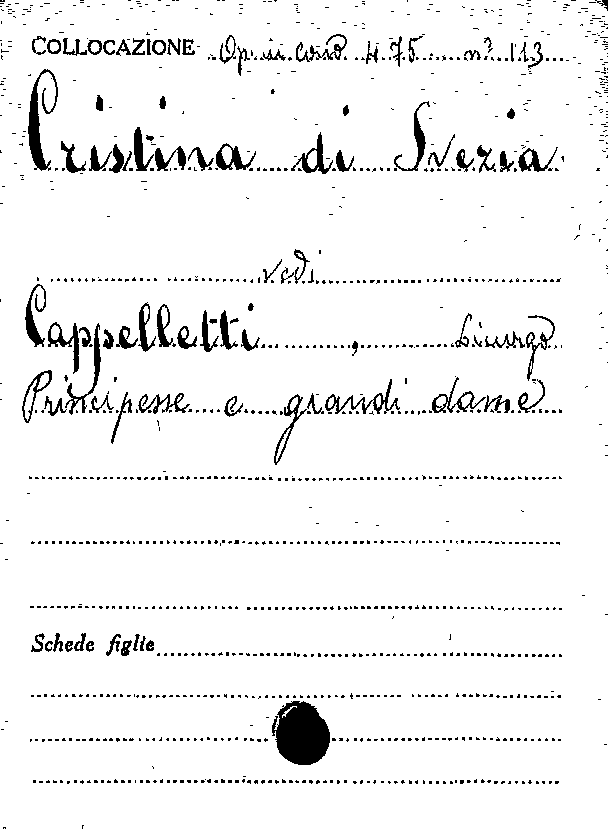 COLLOCAZIONE Op in corso H 75 n° 113
Cristina di Svezia
vedi
Cappelletti, Licurgo
Principesse e grandi dame
Schede figlie